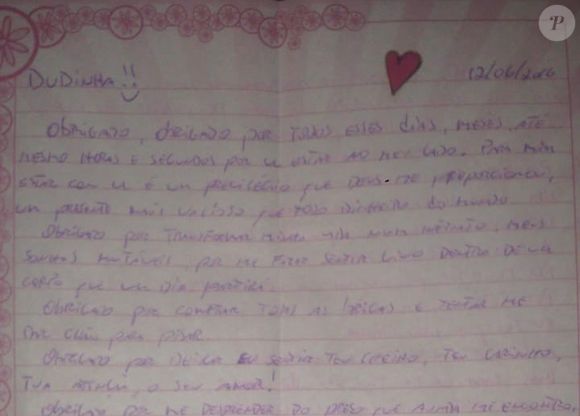 DUDINHA!! 12/06/2016
OBRIGADO, OBRIGADO POR TODOS ESSES DIAS, MESES, ATÉ
MESMO HORAS E SEGUNDOS POR ESTAR AO MEU LADO. PARA MIM
ESTAR COM É UM PRIVILÉGIO QUE DEUS ME PROPORCIONOU,
UM PRESENTE MAIS VALIOSO QUE TODO DINHEIRO DO MUNDO
OBRIGADO POR TRANSFORMAR MINHA VIDA NUM INFINITO, MEUS
SONHOS MUTÁVEIS, POR ME FAZER SENTIR VIVO DENTRO DE UM
CORPO QUE UM DIA PARTIRÁ.
OBRIGADO POR COMPRAR TODAS AS BRIGAS E TENTAR ME
DAR CHÃO PARA PISAR.
OBRIGADO POR DEIXAR EU SENTIR TEU CHEIRO, TEU CARINHO,
TUA ATENÇÃO, O SEU AMOR!
OBRIGADO POR ME DESPRENDER DO PRESO QUE AINDA ME ENCONTRO
P